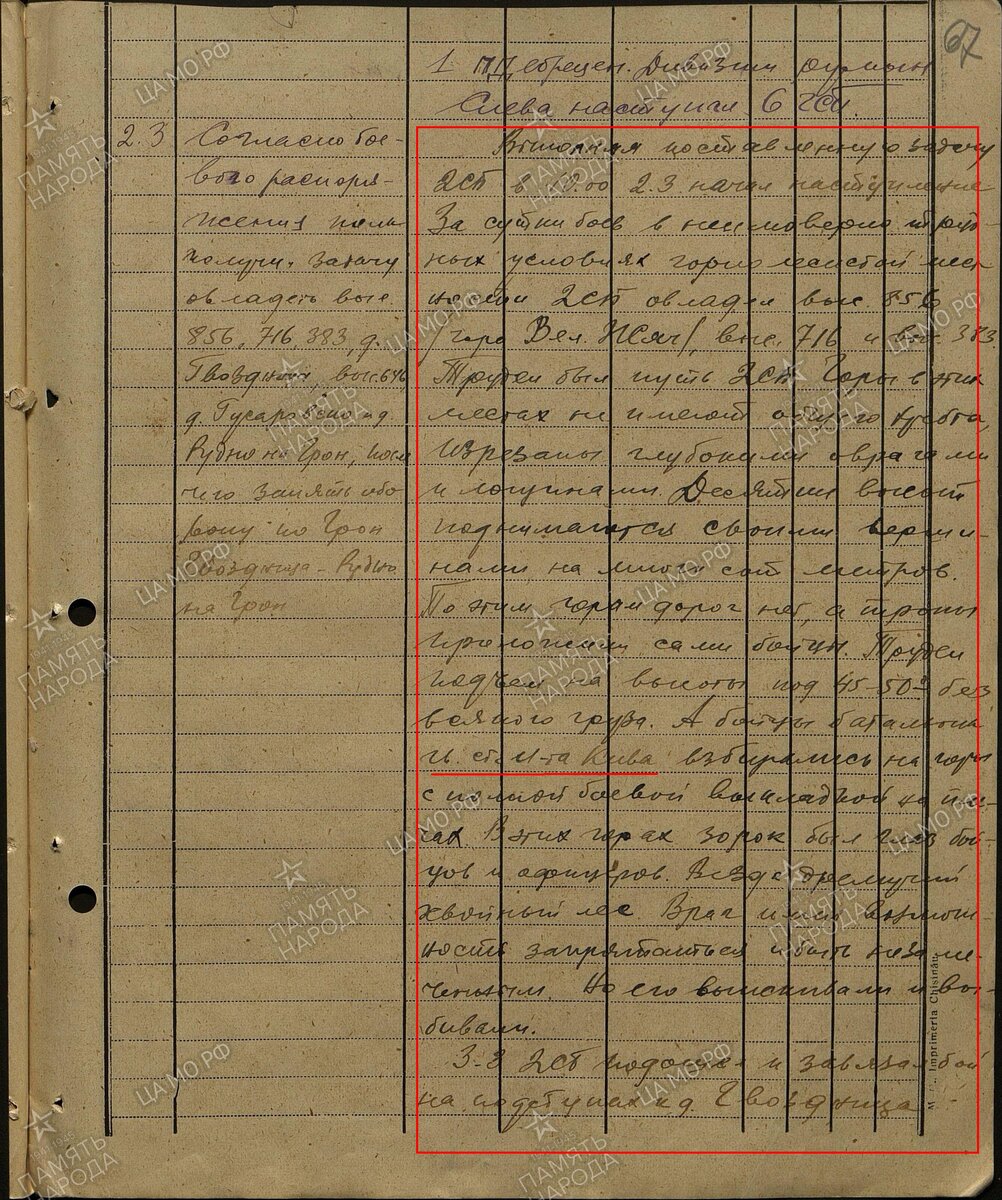 67
1 ПД ебрецен. Дивизии румын
Слева наступил 6 гсп
2.3
Согласно бое-
вого распоря-
жения полк
получил задачу
овладеть выс.
856, 716, 383, д.
Гвоздница выс. 646
д. и д.
Рудно на Грон, после
чего занять обо
рону по Грон
Гвоздница - Рудно
на Грон
Выполняя поставленную задачу
2СБ в 10.00 2.3 начал наступление
За сутки боев в неимоверно труд-
ных условиях горно лесистой мест
ности 2СБ овладел выс. 856
/гора Вел. /, выс. 716 и выс. 383
Труден был путь 2СБ. Горы в этих
местах не имеют общего хребта,
Изрезаны глубокими оврагами
и лощинами. Десятки высот
поднимаются своими верши-
нами, на много сот метров.
По этим горам дорог нет, а тропы
проложили сами бойцы. Труден
подъем на высоты под 45-50° без
всякого груза. А бойцы батальона
гв. ст. л-та Кива взбирались на горы
с полной боевой выкладкой на пле-
чах. В этих горах зорок был глаз бой-
цов и офицеров. Везде дремучий
хвойный лес Враг имел возмож-
ность запрятаться и быть незаме-
ченным. Но его выискивали и вы-
бивали.
3.3 2СБ подошел и завязал бой
на подступах к д. Гвоздница
Imprimeria Chisinău
ЦАМО.РФ
ПАМЯТЬ
НАРОДА